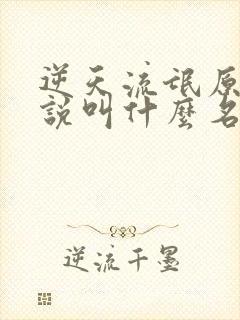 逆天流氓原
說叫什麼名
逆流千墨